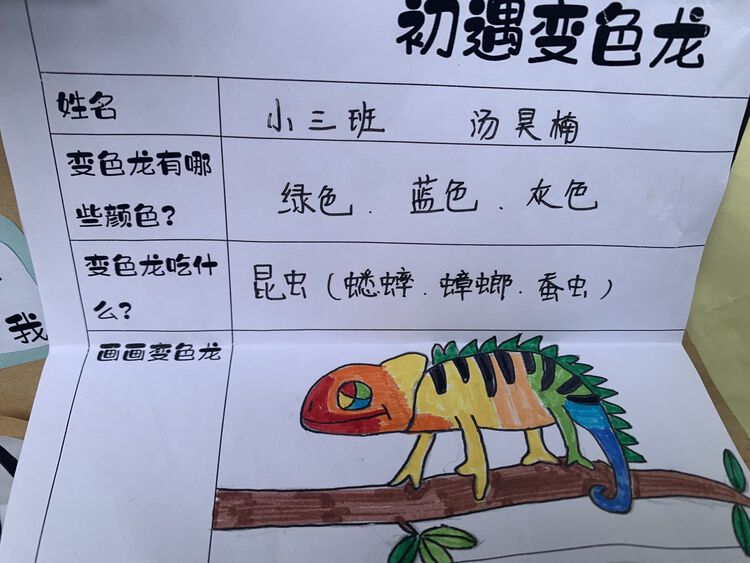 初遇变色龙
姓名
小三班 汤昊楠
变色龙有哪
些颜色?
绿色、蓝色、灰色
变色龙吃什
么?
昆虫(蟋蟀、蟑螂、蚕虫)
画画变色龙
我